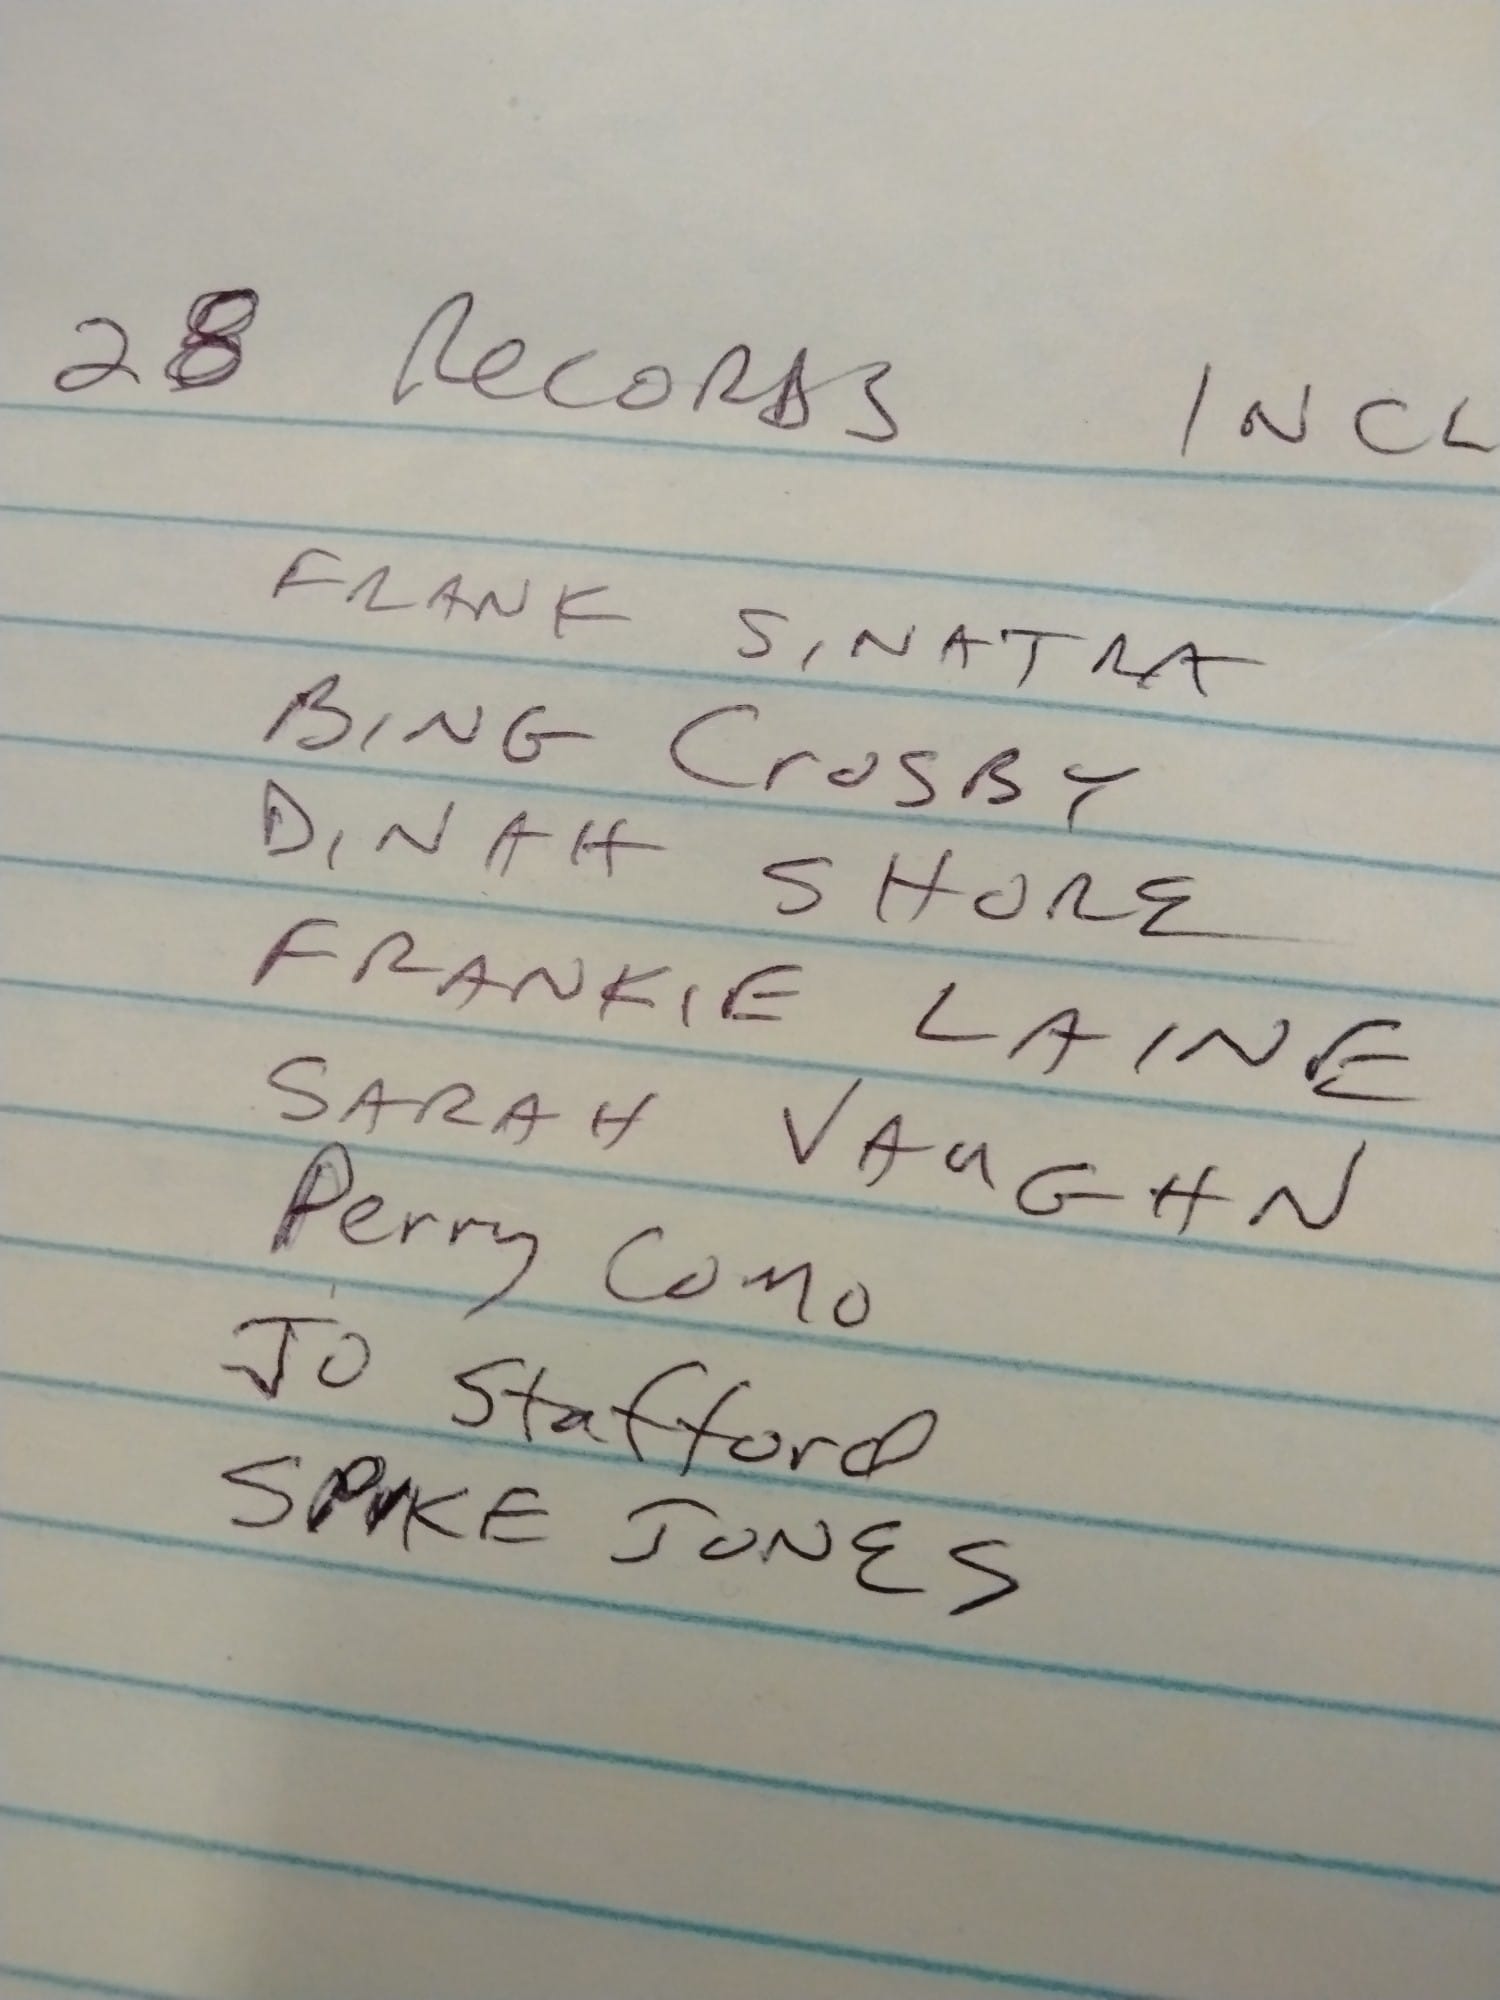 28 Records INCL
FRANK SINATRA
BING CROSBY
DINAH SHORE
FRANKIE LAINE
SARAH VAUGHN
Perry Como
JO Stafford
SPIKE JONES